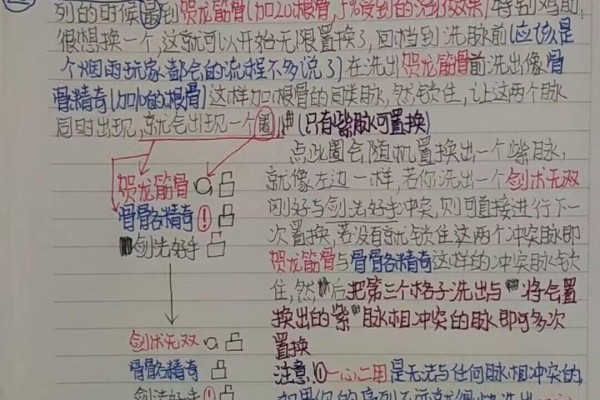 列的时候量到贺龙筋骨(加20根骨,5%受到的治疗效果)特别鸡肋,
很想换一个,这就可以开始无限置换了,回档到洗脉前(应该是
个烟雨玩家都会的流程不多说了)在洗出贺龙筋骨前洗出像骨
骨精奇(加心的根骨)这样加根骨的同类脉,然后锁住,让这两个脉
同时出现,就会出现一个圈(只有紫脉可置换)
点此圈会随机置换出一个紫脉,
就像左边一样,若你洗出一个剑术无双
刚好与剑法好手冲突,则可直接进行下一
次置换,若没有就锁住这两个冲突脉即
贺龙筋骨与骨骼精奇这样的冲突脉锁
住,然后把第三个格子洗出与将会置
换出的紫脉相冲突的脉即可多次
置换
贺龙筋骨
骨骼精奇!
剑法好手
剑术无双
骨骼精奇
剑法好手!
注意,①一心二用是无法与任何脉相冲突的,